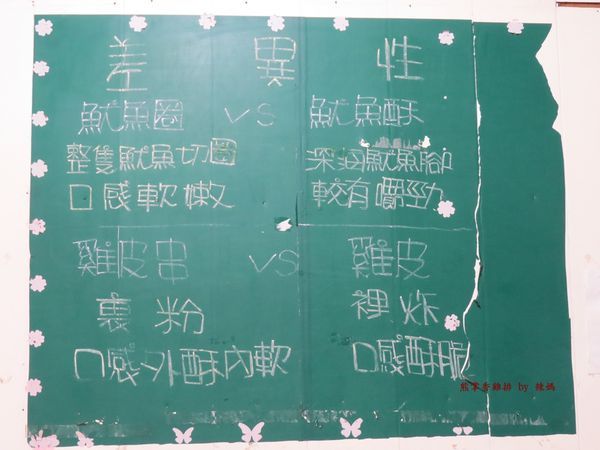 差異性
魷魚圈 VS 魷魚酥
整隻魷魚切圈 深海魷魚腳
口感軟嫩 較有嚼勁
雞皮串 VS 雞皮
裹粉 裡炸
口感外酥內軟 口感酥脆
熊掌香雞排 by 辣媽